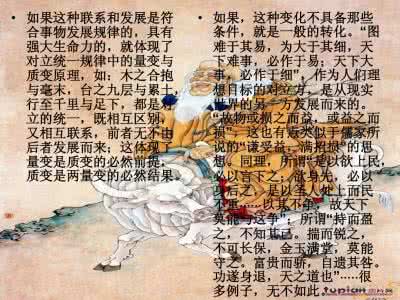 如果这种联系和发展是符
合事物发展规律的，具有
强大生命力的，就体现了
对立统一规律中的量变与
质变原理，如：木之合抱
与毫末，台之九层与累土，
行至千里与足下，都是对
立的统一，既相互区别，
又相互联系，前者无不由
后者发展而来，这体现了
量变是质变的必然前提，
质变是两量变的必然结果。
如果，这种变化不具备那些
条件，就是一般的转化。“图
难于其易，为大于其细，天
下难事，必作于易；天下大
事，必作于细”，作为人们理
想目标的对立方，是从现实
世界的另一方发展而来的。
“故物或损之而益，或益之而
损”，这也有点类似于儒家所
说的“谦受益，满招损”的思
想。同理，所谓“是以欲上民，
必以言下之；欲身先，必以
身后之，是以圣人处上而民
不重……以其不争，故天下
莫能与这争”；所谓“持而盈
之，不知其己。揣而锐之，
不可长保，金玉满堂，莫能
守之。富贵而骄，自遗其咎。
功遂身退，天之道也”……很
多例子，无不如此。